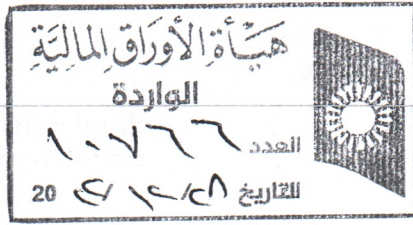 هيأة الأوراق المالية
الواردة
العدد ١٠٧٦٦
التاريخ ٢٨/١٢/ 20